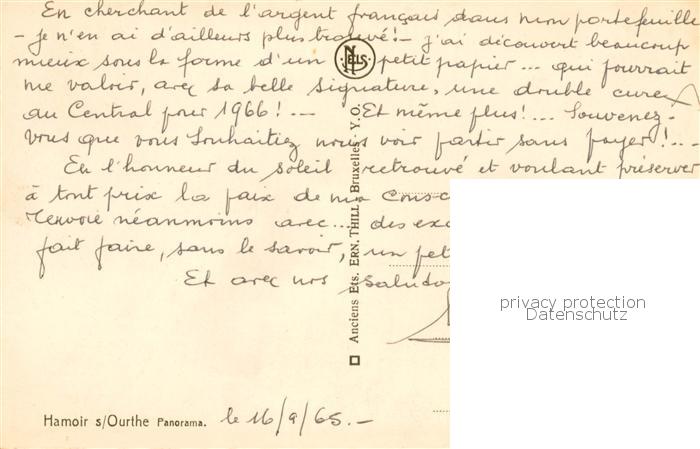 En cherchant de l'argent français dans mon portefeuille
- je n'en ai d'ailleurs plus trouvé! - j'ai découvert beaucoup
mieux sous la forme d'un petit papier... qui pourrait
NELS
me valoir, avec sa belle signature, une double cure
au Central pour 1966! ... Et même plus!... Souvenez-
vous que vous souhaitiez nous voir partir sans payer!...
En l'honneur du soleil retrouvé et voulant préserver
à tout prix la paix de ma
renvoie néanmoins avec... des
fait faire, sans le savoir, un
Et avec nos
Anciens Ets. ERN. THILL, Bruxelles - Y. O.
privacy protection
Datenschutz
Hamoir s/Ourthe Panorama. le 16/9/65.-